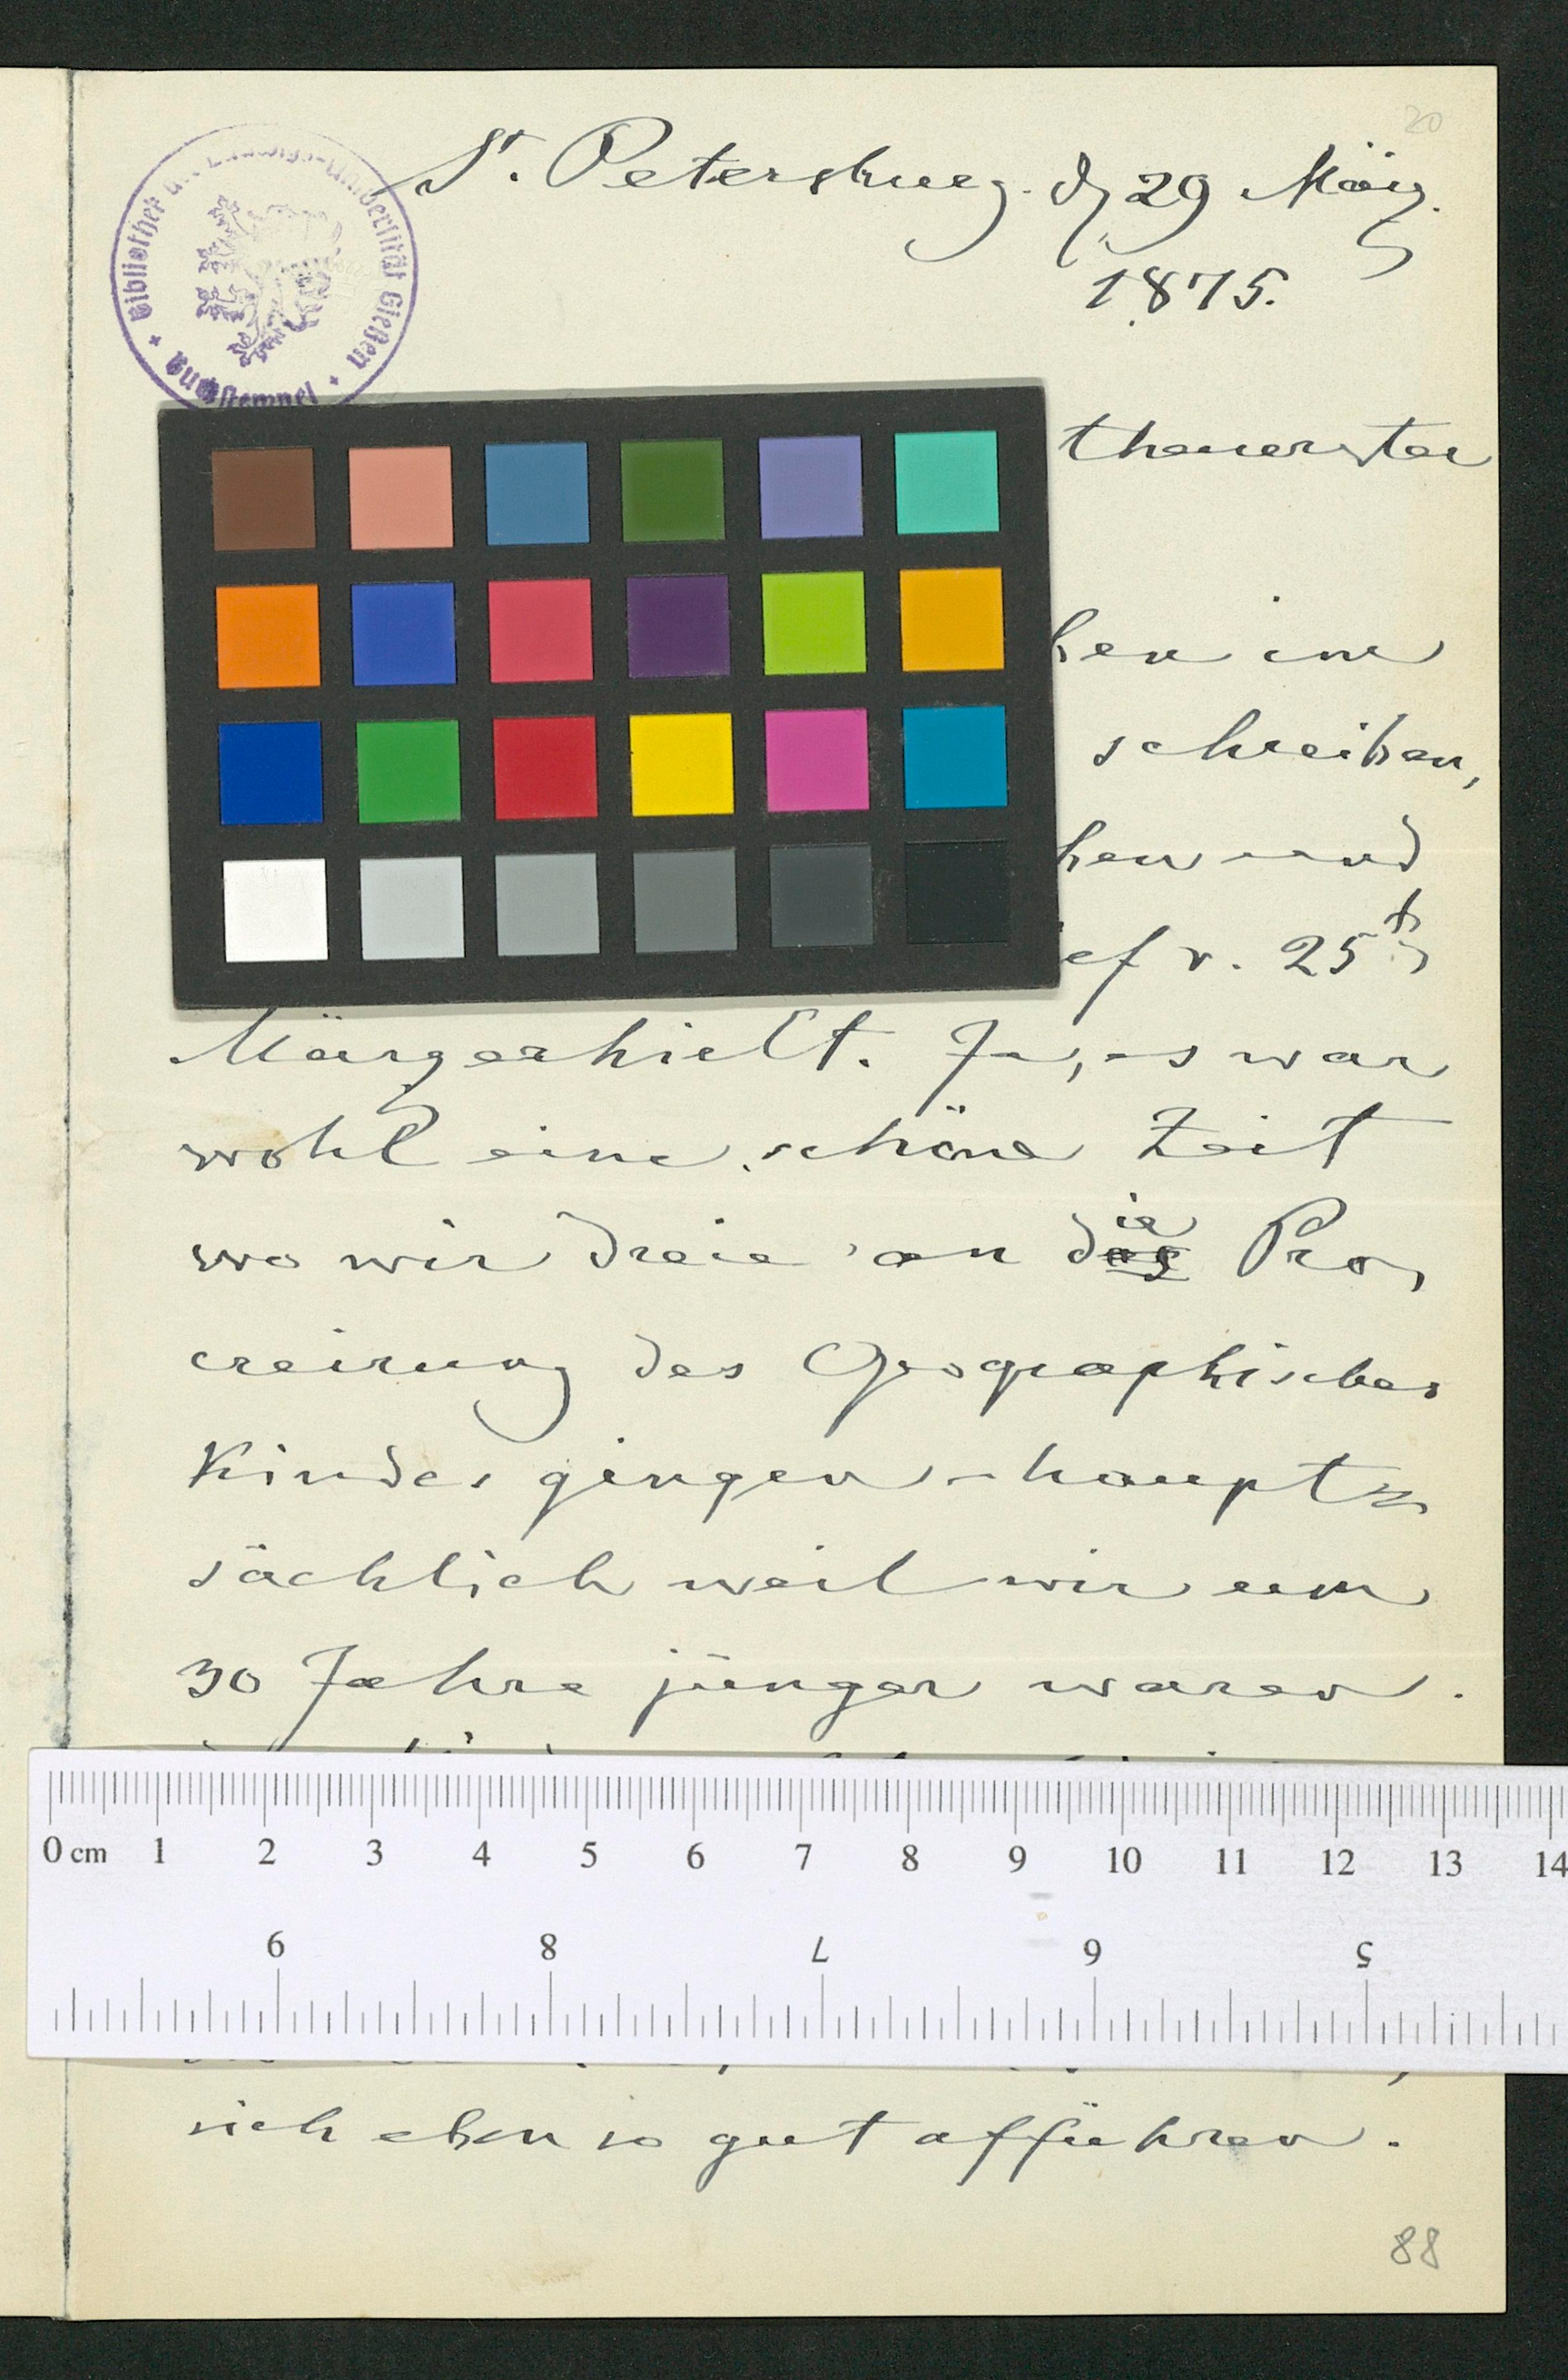 20
St. Petersburg. d. 29 März.
1875.
Bibliothek der Ludwigs-Universität Gießen
theuerster
hen im
schreiben,
hen und
ief v. 25t
März erhielt. Ja, es war
wohl eine schöne Zeit
wo wir dreie an das ie Pro,
creirung des Geographischen
Kindes gingen – haupt=
sächlich weil wir um
30 Jahre jünger waren.
0 cm 1 2 3 4 5 6 7 8 9 10 11 12 13 14
9 8 7 6 5
sich eben so gut afführen.
88